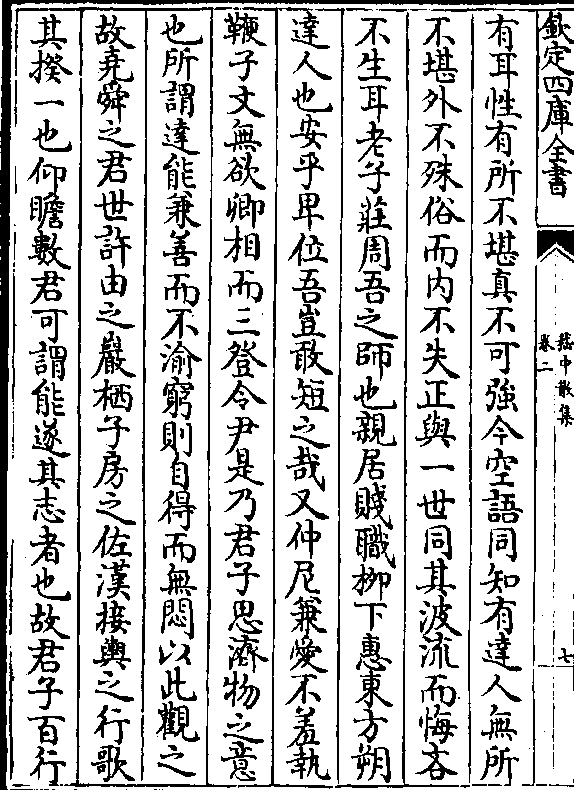 欽定四庫全書
嵇中散集
卷二
七
有耳性有所不堪真不可強今空語同知有達人無所
不堪外不殊俗而内不失正與一世同其波流而悔吝
不生耳老子莊周吾之師也親居賤職柳下惠東方朔
達人也安乎卑位吾豈敢短之哉又仲尼兼愛不羞執
鞭子文無欲卿相而三登令尹是乃君子思濟物之意
也所謂達能兼善而不渝窮則自得而無悶以此觀之
故堯舜之君世許由之巖栖子房之佐漢接輿之行歌
其揆一也仰瞻數君可謂能遂其志者也故君子百行